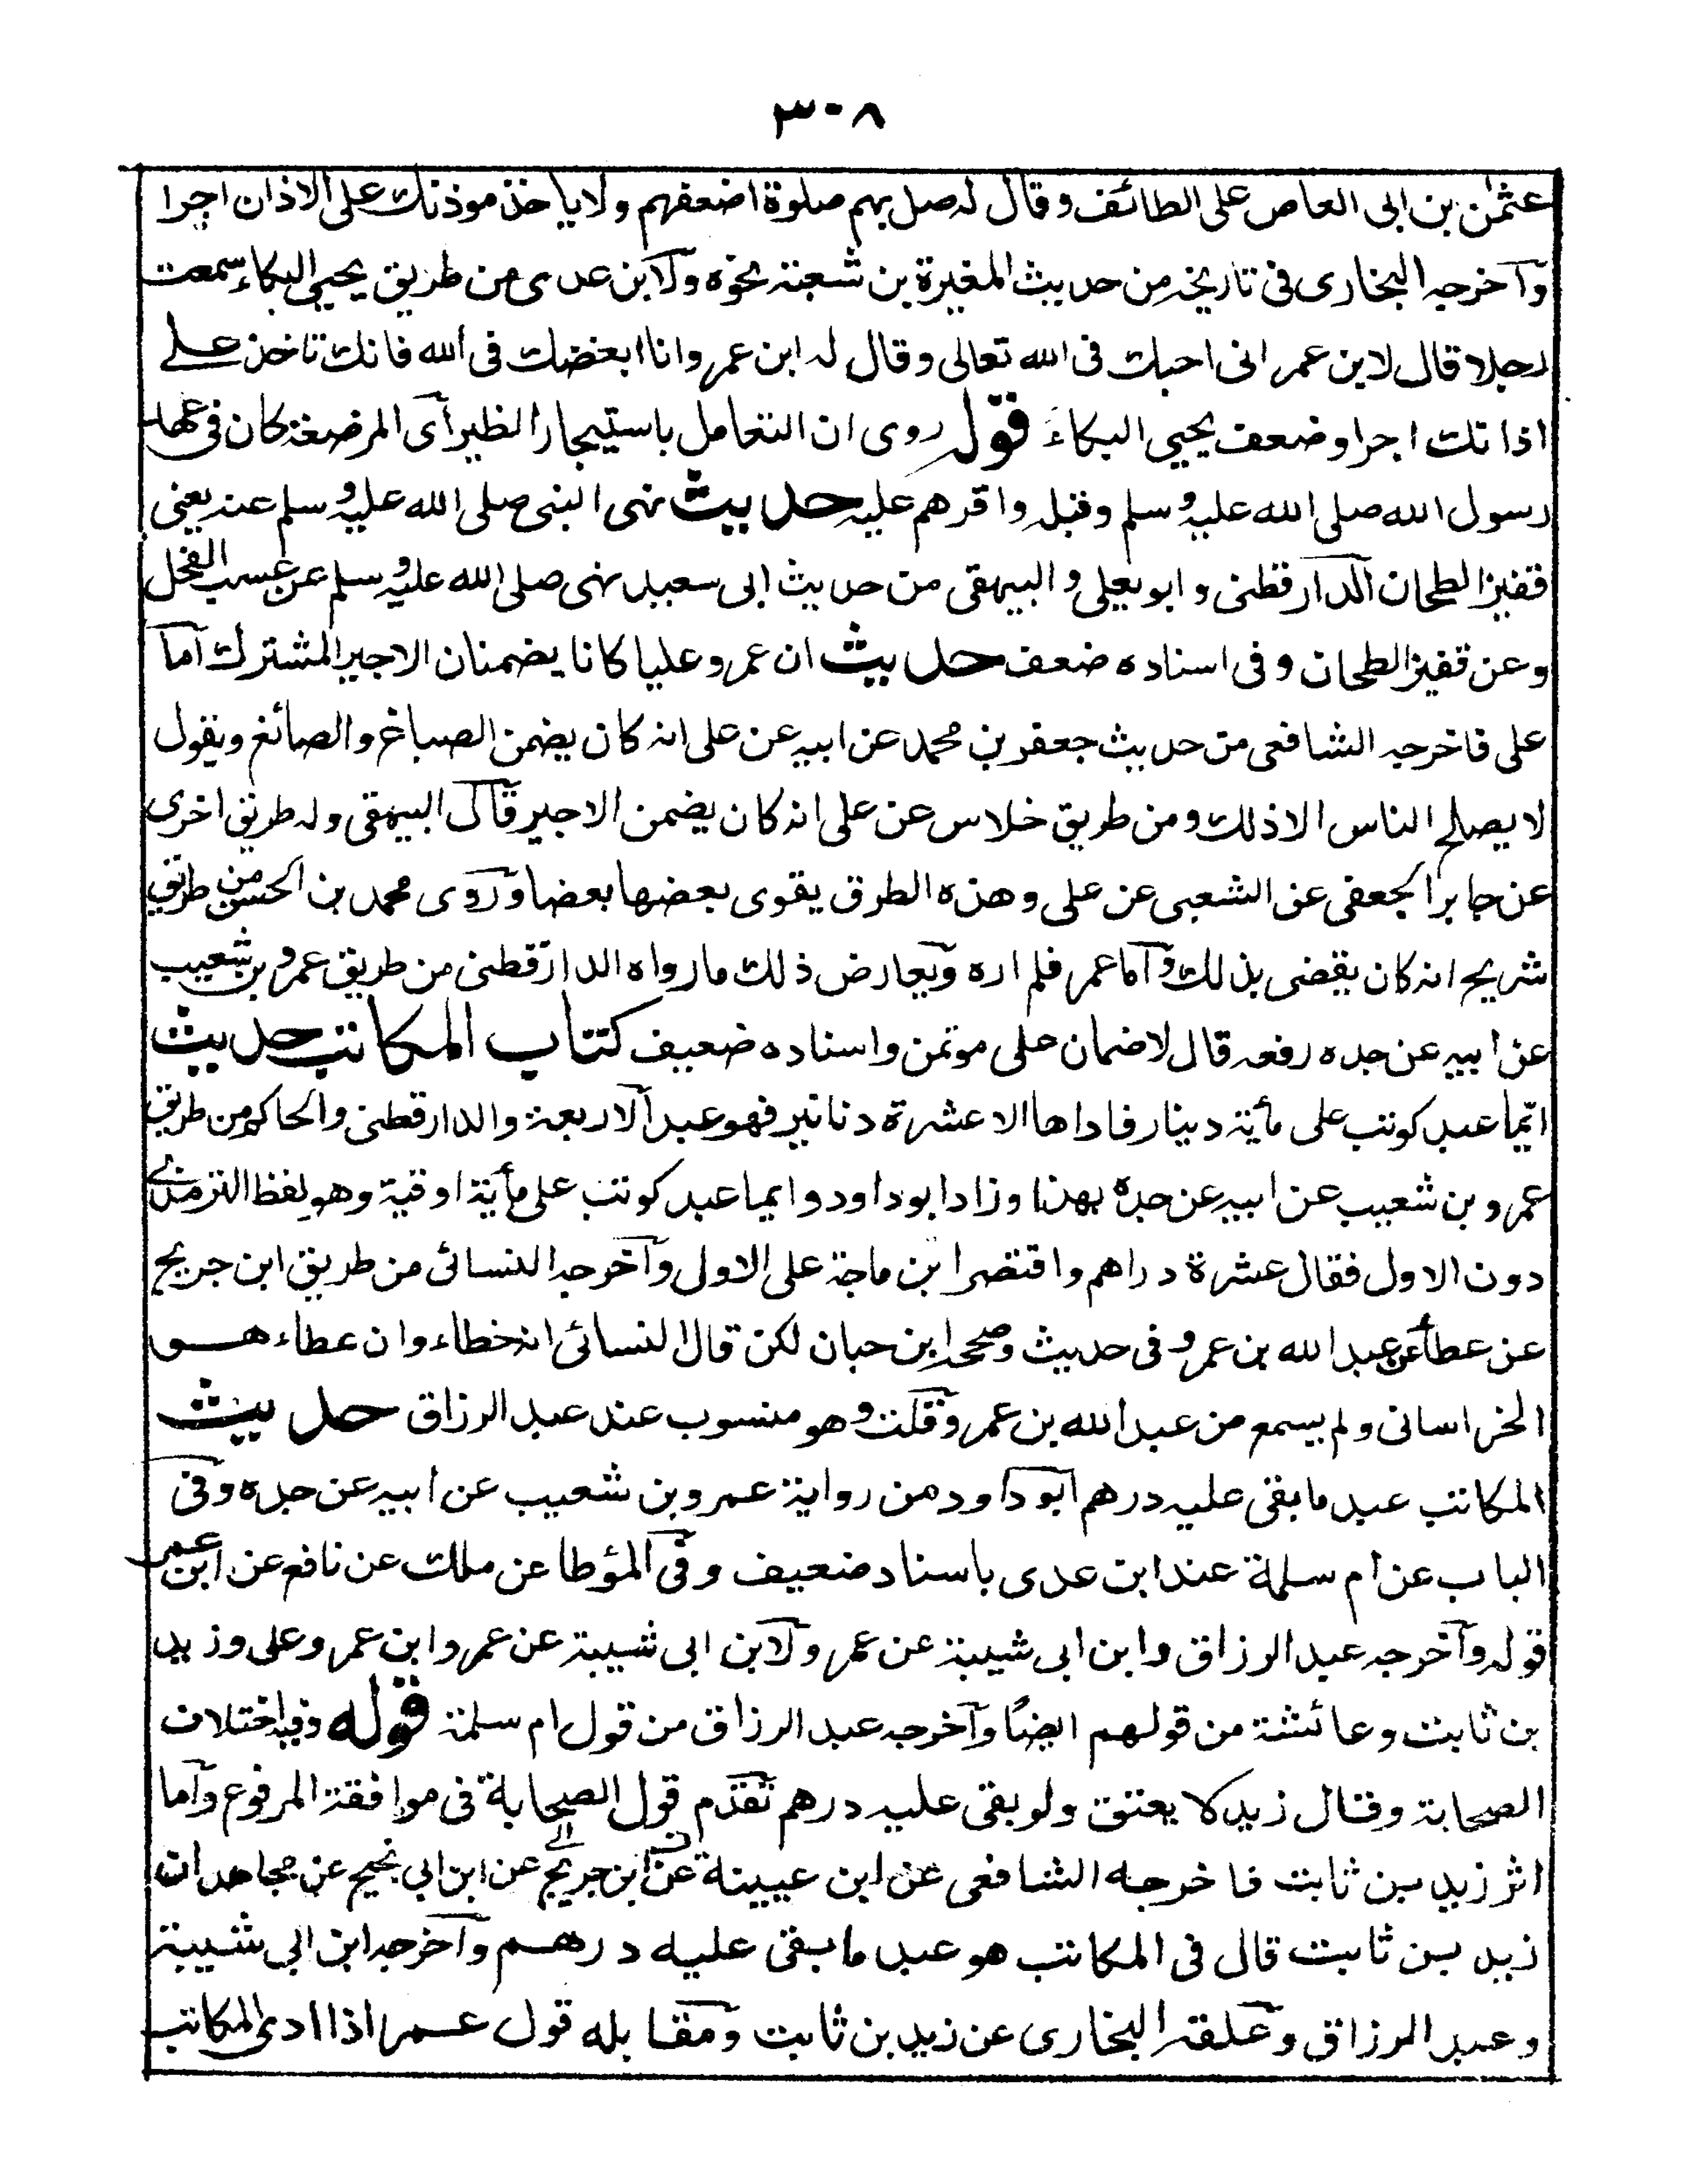 ٣٠٨
عثمن بن ابى العاص على الطائف وقال له صل بهم صلوة اضعفهم ولا ياخذ موذنك على الاذان اجرا
وآخرجه البخارى فى تاريخه من حديث المغيرة بن شعبة نحوه ولابن عدى من طريق يحيى البكاء سمعت
رجلا قال لابن عمر انى احبك فى الله تعالى وقال له ابن عمر وانا ابغضك فى الله فانك تاخذ على
اذانك اجرا وضعف يحيى البكاء قوله روى ان التعامل باستيجار الظير اى المرضعة كان فى عهد
رسول الله صلى الله عليه وسلم وقبله واقرهم عليه حديث نهى النبى صلى الله عليه وسلم عنه يعنى
قفيز الطحان الدارقطنى وابو يعلى والبيهقى من حديث ابى سعيد نهى صلى الله عليه وسلم عن عسب الفحل
وعن قفيز الطحان وفى اسناده ضعف حديث ان عمر وعليا كانا يضمنان الاجير المشترك اما
على فاخرجه الشافعى من حديث جعفر بن محمد عن ابيه عن على انه كان يضمن الصباغ والصائغ ويقول
لا يصلح الناس الا ذلك ومن طريق خلاس عن على انه كان يضمن الاجير قال البيهقى وله طريق اخرى
عن جابر الجعفى عن الشعبى عن على وهذه الطرق يقوى بعضها بعضا وروى محمد بن الحسن من طريق
شريح انه كان يقضى بذلك وآما عمر فلم اره ويعارض ذلك ما رواه الدارقطنى من طريق عمرو بن شعيب
عن ابيه عن جده رفعه قال لا ضمان على موتمن واسناده ضعيف كتاب المكاتب حديث
ايّما عبد كوتب على مأية دينار فاداها الا عشرة دنانير فهو عبد الاربعة والدارقطنى والحاكم من طريق
عمرو بن شعيب عن ابيه عن جده بهذا وزاد ابو داود وايما عبد كوتب على مأية اوقية وهو لفظ الترمذى
دون الاول فقال عشرة دراهم واقتصر ابن ماجة على الاول وآخرجه النسائى من طريق ابن جريج
عن عطاء عن عبد الله بن عمرو فى حديث وصححه ابن حبان لكن قال النسائى انه خطاء وان عطاء هو
الخراسانى ولم يسمع من عبد الله بن عمرو قلت وهو منسوب عند عبد الرزاق حديث
المكاتب عبد ما بقى عليه درهم ابو داود من رواية عمرو بن شعيب عن ابيه عن جده وفى
الباب عن ام سلمة عند ابن عدى باسناد ضعيف وفى المؤطا عن ملك عن نافع عن ابن عمر
قوله وآخرجه عبد الرزاق وابن ابى شيبة عن عمر ولابن ابى شيبة عن عمر وابن عمر وعلى وزيد
بن ثابت وعائشة من قولهم ايضًا وآخرجه عبد الرزاق من قول ام سلمة قوله وفيه اختلاف
الصحابة وقال زيد لا يعتق ولو بقى عليه درهم تقدم قول الصحابة فى موافقة المرفوع وآما
اثر زيد بن ثابت فاخرجه الشافعى عن ابن عيينة عن ابن جريج عن ابن ابى نجيح عن مجاهد ان
زيد بن ثابت قال فى المكاتب هو عبد ما بقى عليه درهم وآخرجه ابن ابى شيبة
وعبد الرزاق وعلقه البخارى عن زيد بن ثابت ومقابله قول عمر اذا ادى المكاتب